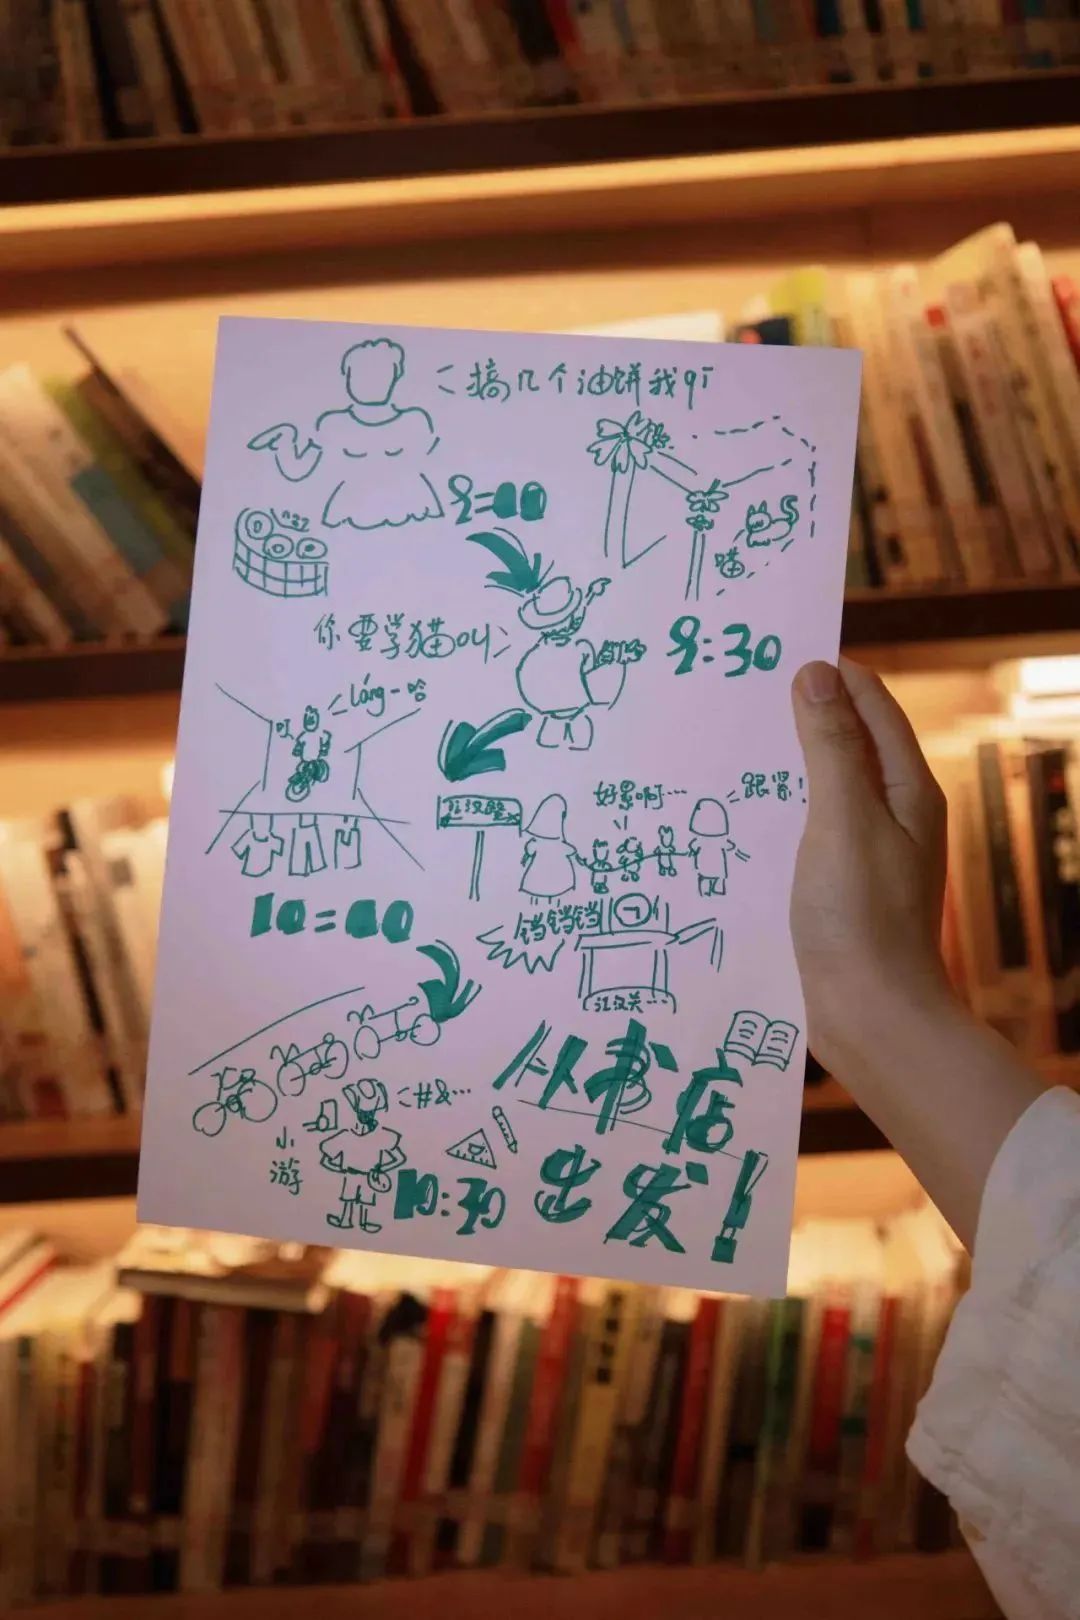 搞几个油饼我qī
9:00
喵
你要学猫叫
9:30
láng一哈
叮
好累啊…
跟紧!
江汉路
10:00
铛铛铛
江汉关…
#&…
小游
10:30
从书店
出发!